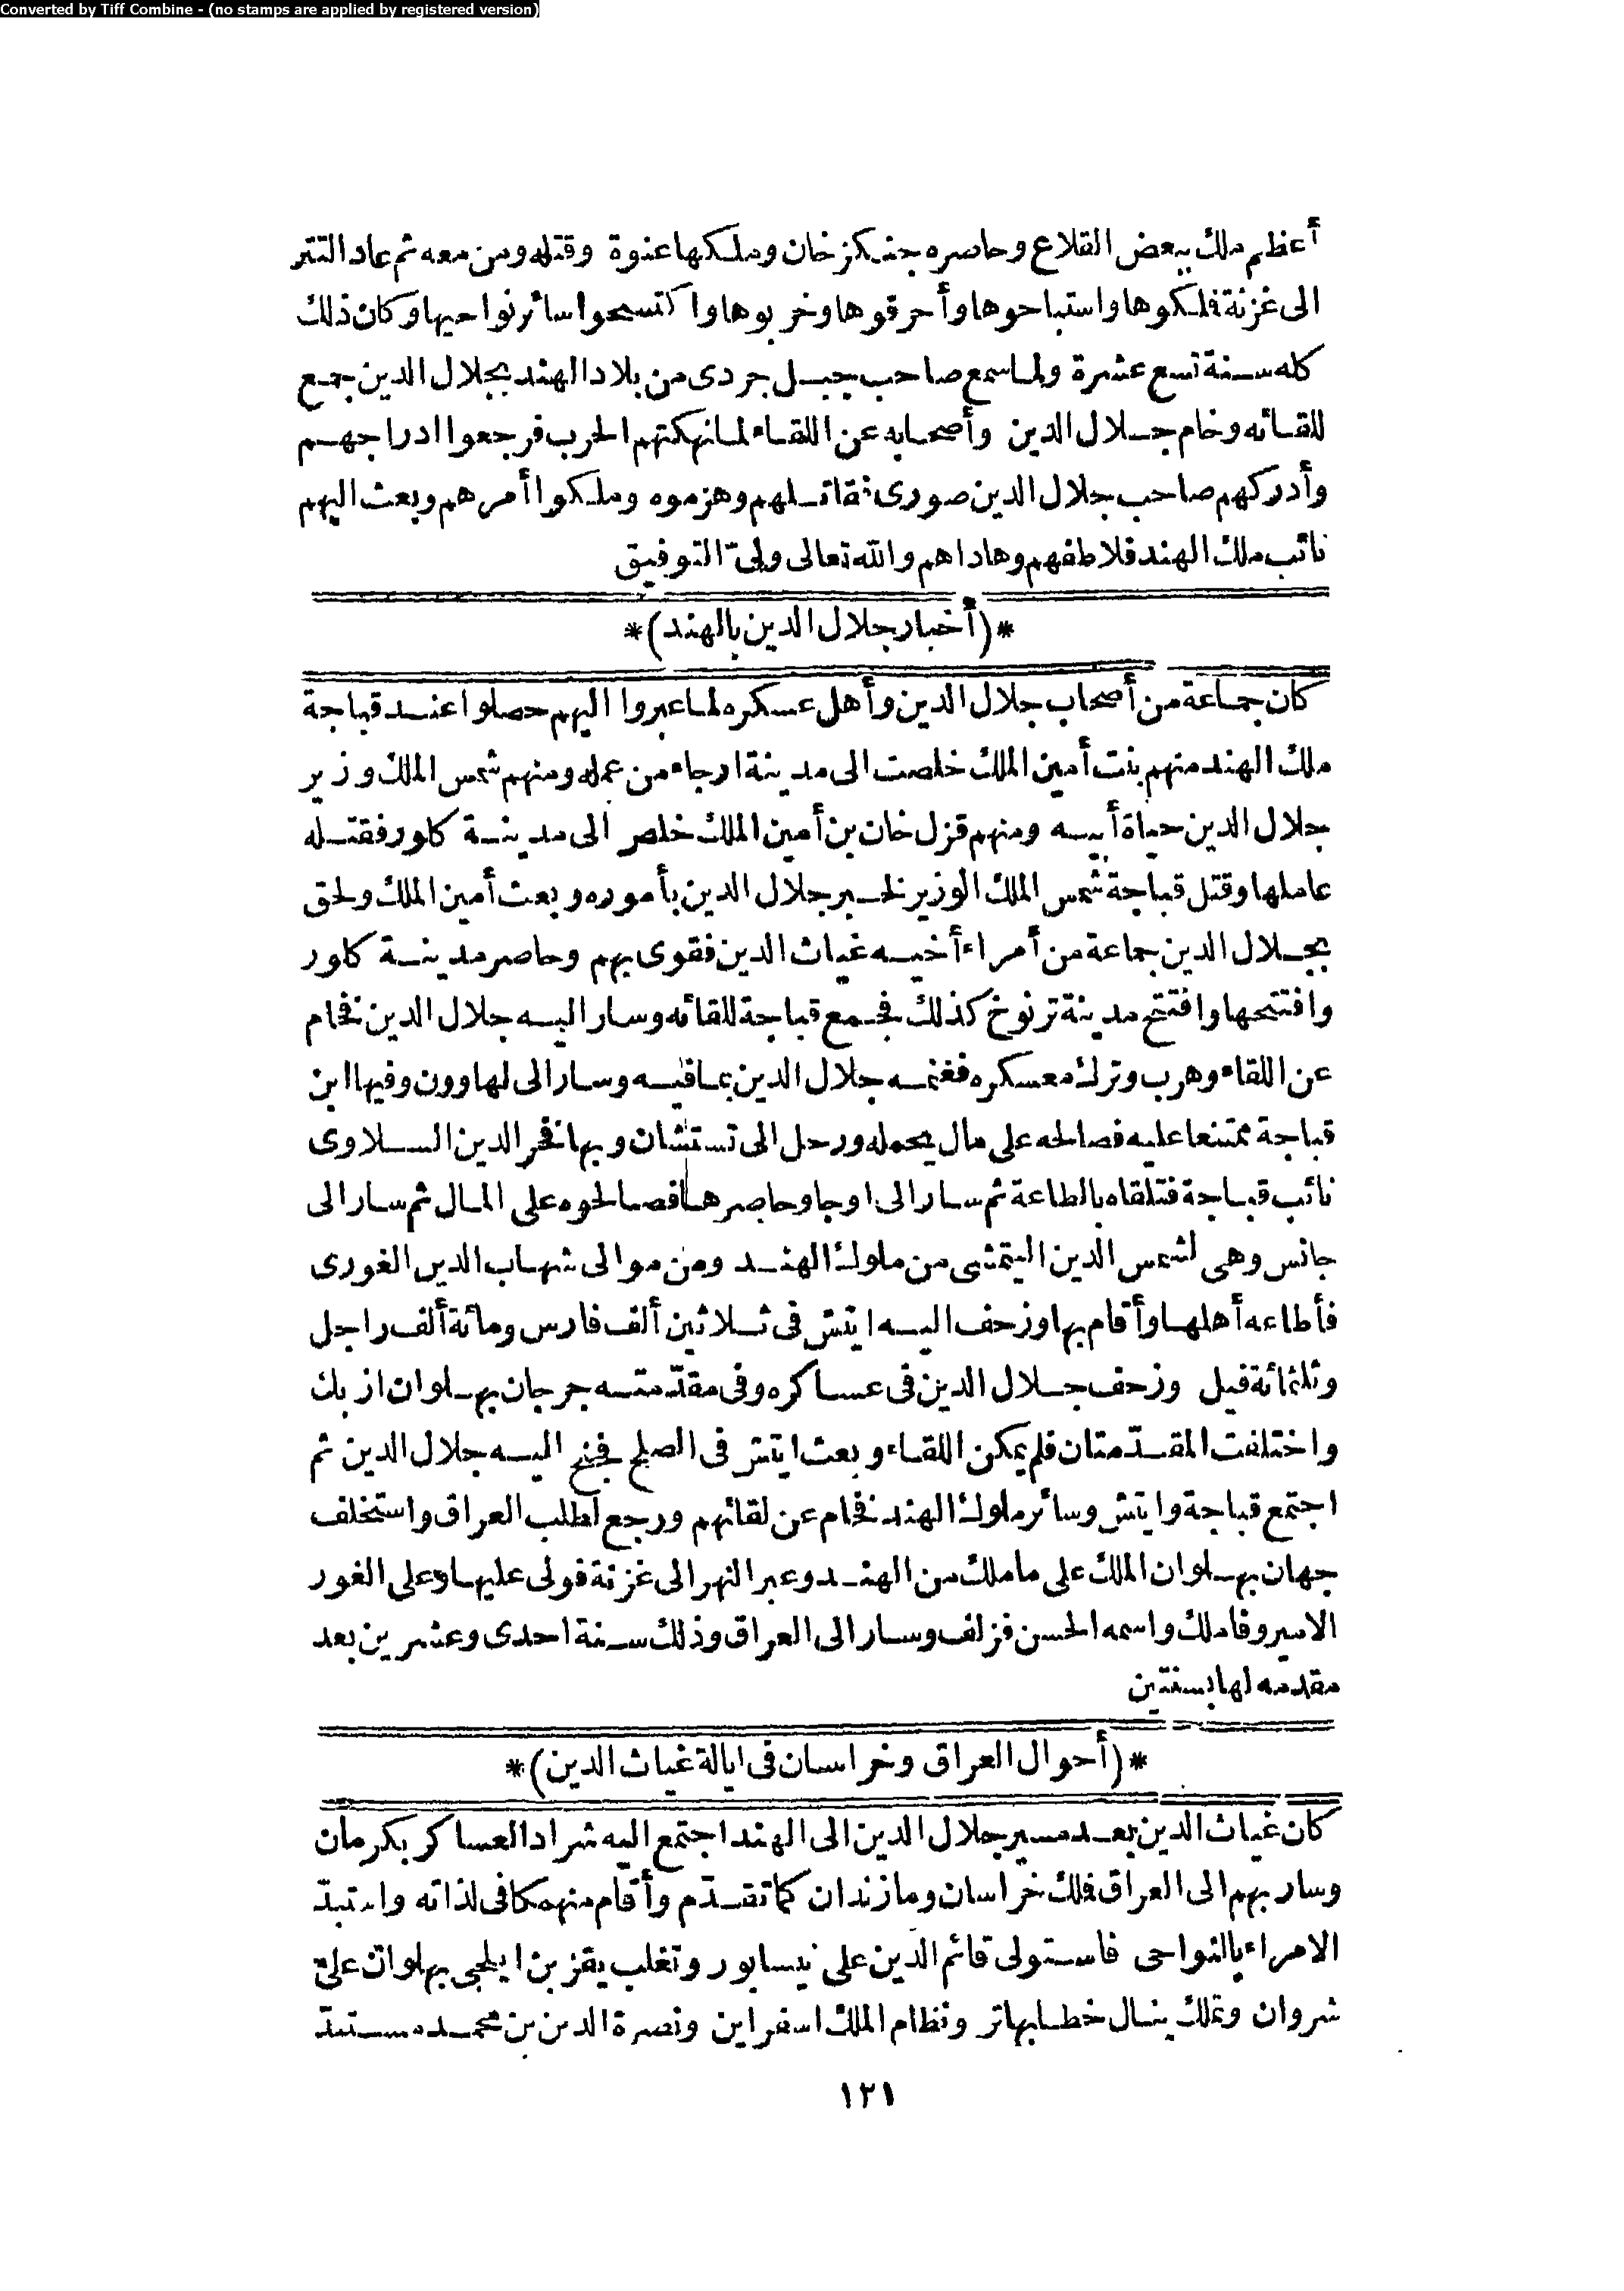 Converted by Tiff Combine - (no stamps are applied by registered version)
أعظم ملك ببعض القلاع وحاصره جنكز خان وملكها عنوة وقتله ومن معه ثم عاد التتر
الى غزنة فلكوها واستباحوها وأحرقوها وخربوها واكتسحوا سائر نواحيها وكان ذلك
كله سنة تسع عشرة ولما سمع صاحب جبل جردى من بلاد الهند بجلال الدين جمع
للقائه وخام جلال الدين وأصحابه عن اللقاء لما نهكتهم الحرب فرجعوا ادراجهم
وأدركهم صاحب جلال الدين صورى فقاتلهم وهزموه وملكوا أمرهم وبعث اليهم
نائب ملك الهند فلاطفهم وهاداهم والله تعالى ولىّ التوفيق
*(أخبار جلال الدين بالهند)*
كان جماعة من أصحاب جلال الدين وأهل عسكره لما عبروا اليهم حصلوا عند قباجة
ملك الهند منهم بنت أمين الملك خلصت الى مدينة ارجاء من عمله ومنهم شمس الملك وزير
جلال الدين حياة أبيه ومنهم قزل خان بن أمين الملك خلص الى مدينة كلور فقتله
عاملها وقتل قباجة شمس الملك الوزير لخبر جلال الدين بأموره وبعث أمين الملك ولحق
بجلال الدين جماعة من أمراء أخيه غياث الدين فقوى بهم وحاصر مدينة كلور
وافتتحها وافتتح مدينة ترنوخ كذلك فجمع قباجة للقائه وسار اليه جلال الدين فخام
عن اللقاء وهرب وترك معسكره فغنمه جلال الدين بما فيه وسار الى لهاوون وفيها ابن
قباجة ممتنعا عليه فصالحه على مال يحمله ورحل الى تستشان وبها فخر الدين السلاوى
نائب قباجة فتلقاه بالطاعة ثم سار الى اوجا وحاصرها فصالحوه على المال ثم سار الى
جانس وهى لشمس الدين اليتمشى من ملوك الهند ومن موالى شهاب الدين الغورى
فأطاعه أهلها وأقام بها وزحف اليه ايتش فى ثلاثين ألف فارس ومائة ألف راجل
وثلثمائة فيل وزحف جلال الدين فى عساكره وفى مقدّمته جرجان بهلوان ازبك
واختلفت المقدّمتان فلم يمكن اللقاء وبعث ايتش فى الصلح فجنح اليه جلال الدين ثم
اجتمع قباجة وايتش وسائر ملوك الهند فخام عن لقائهم ورجع لطلب العراق واستخلف
جهان بهلوان الملك على ما ملك من الهند وعبر النهر الى غزنة فولى عليها وعلى الغور
الامير وفاملك واسمه الحسن فزلف وسار الى العراق وذلك سنة احدى وعشرين بعد
مقدمه لها بسنتين
*(أحوال العراق وخراسان فى ايالة غياث الدين)*
كان غياث الدين بعد مسير جلال الدين الى الهند اجتمع اليه شراد العساكر بكرمان
وسار بهم الى العراق فلك خراسان ومازندان كما تقدّم وأقام منهمكا فى لذاته واستبدّ
الامراء بالنواحى فاستولى قائم الدين على نيسابور وتغلب يقز بن ايلجى بهلوان على
شروان وتملك ينال خطا بهاتر ونظام الملك اسفراين ونصرة الدين بن محمد مستبدّ
١٢١